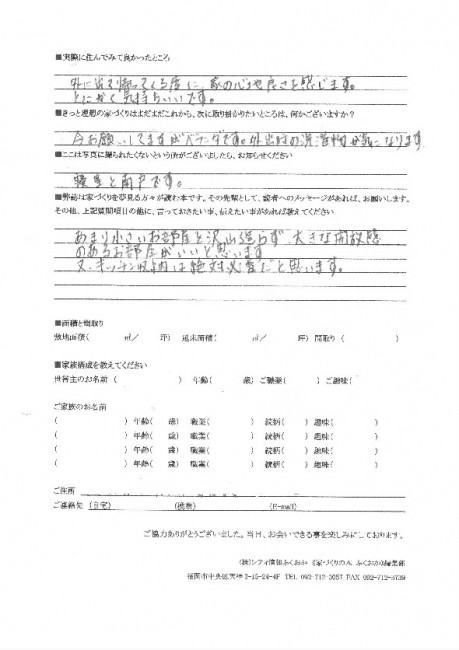 ■実際に住んでみて良かったところ
外に出て帰ってくる度に、家の心地良さを感じます。
とにかく気持ちいいです。
■きっと理想の家づくりはまだまだこれから、次に取り掛かりたいところは、何かございますか?
今お願いしてますがベランダです。外出時の洗濯物が気になります
■ここは写真に撮られたくないという所がございましたら、お知らせください
寝室と雨戸です。
■弊誌は家づくりを夢見る方々が読む本です。その先輩として、読者へのメッセージがあれば、お願いします。
その他、上記質問項目の他に、言っておきたい事、伝えたい事があれば教えてください
あまり小さいお部屋を沢山造らず、大きな開放感
のあるお部屋がいいと思います
又、キッチン収納は絶対必要だと思います。
■面積と間取り
敷地面積( ㎡/ 坪) 延床面積( ㎡/ 坪) 間取り( )
■家族構成を教えてください
世帯主のお名前 ( ) 年齢( 歳) ご職業( ) ご趣味( )
ご家族のお名前
( ) 年齢( 歳) 職業( ) 続柄( ) 趣味( )
( ) 年齢( 歳) 職業( ) 続柄( ) 趣味( )
( ) 年齢( 歳) 職業( ) 続柄( ) 趣味( )
( ) 年齢( 歳) 職業( ) 続柄( ) 趣味( )
ご住所
ご連絡先 (自宅) (携帯) (E-mail)
ご協力ありがとうございました。当日、お会いできる事を楽しみにしております。
(株)シティ情報ふくおか 《家づくりの人 ふくおか》編集部
福岡市中央区天神 2-15-24-4F TEL 092-712-3057 FAX 092-712-3739